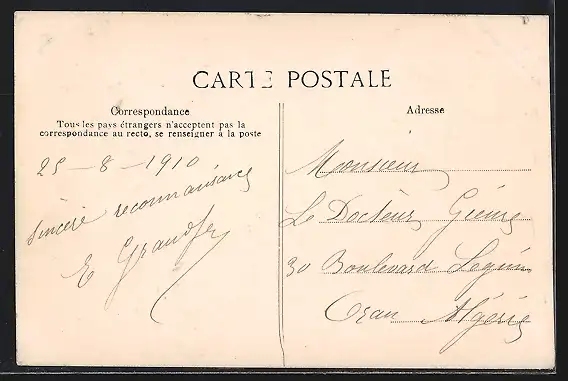 CARTE POSTALE
Correspondance
Tous les pays étrangers n'acceptent pas la
correspondance au recto, se renseigner à la poste
Adresse
25-8-1910
Sincère reconnaissance
E
Monsieur
Le Docteur
30 Boulevard Seguin
Oran Algérie